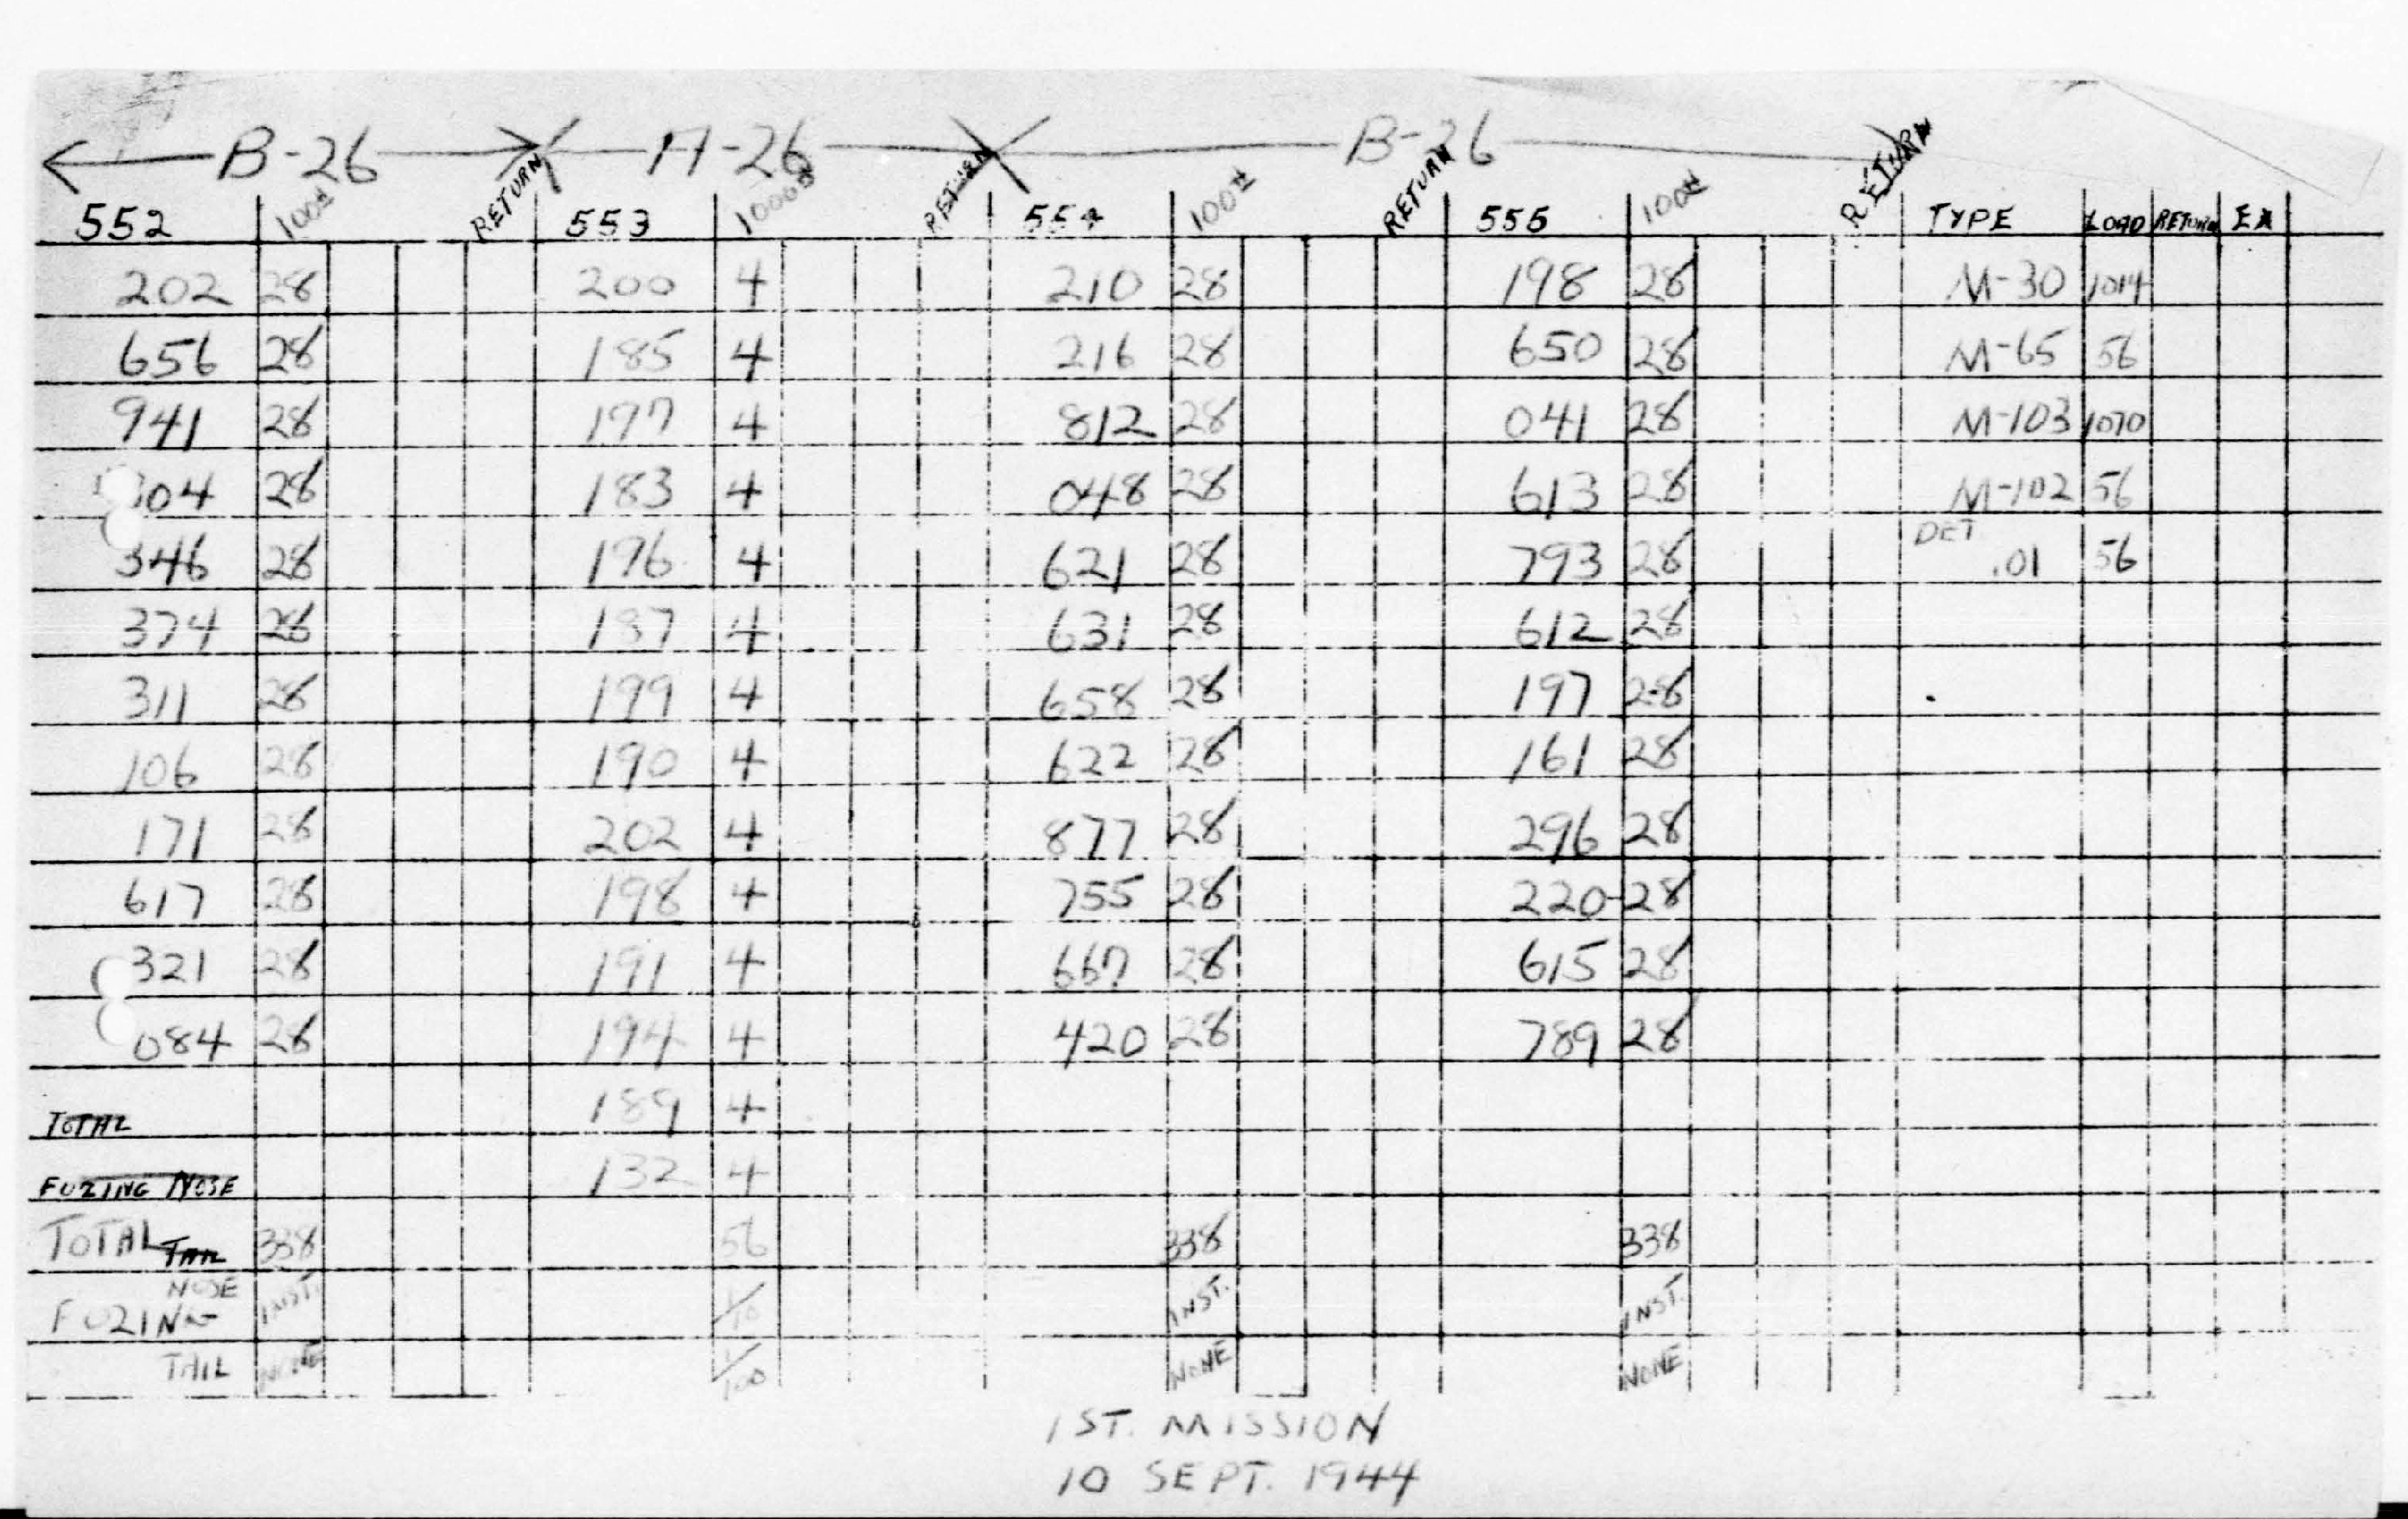 B-26 A-26 B-26
552 100# RETURN 553 1000# RETURN 554 100# RETURN 555 100# RETURN TYPE LOAD RETURN EX
202 28 200 4 210 28 198 28 M-30 1014
656 28 185 4 216 28 650 28 M-65 56
941 28 197 4 812 28 041 28 M-103 1070
04 28 183 4 048 28 613 28 M-102 56
346 28 196 4 621 28 793 28 DET .01 56
374 28 187 4 631 28 612 28
311 28 199 4 658 28 197 28
106 28 190 4 622 28 161 28
171 28 202 4 877 28 296 28
617 28 198 4 755 28 220 28
321 28 191 4 667 28 615 28
084 28 194 4 420 28 789 28
TOTAL 189 4
FUZING NOSE 132 4
TOTAL TAIL 338 56 338 338
NOSE
FUZING INST. 1/10 INST. INST.
TAIL NONE 1/100 NONE NONE
1ST. MISSION
10 SEPT. 1944